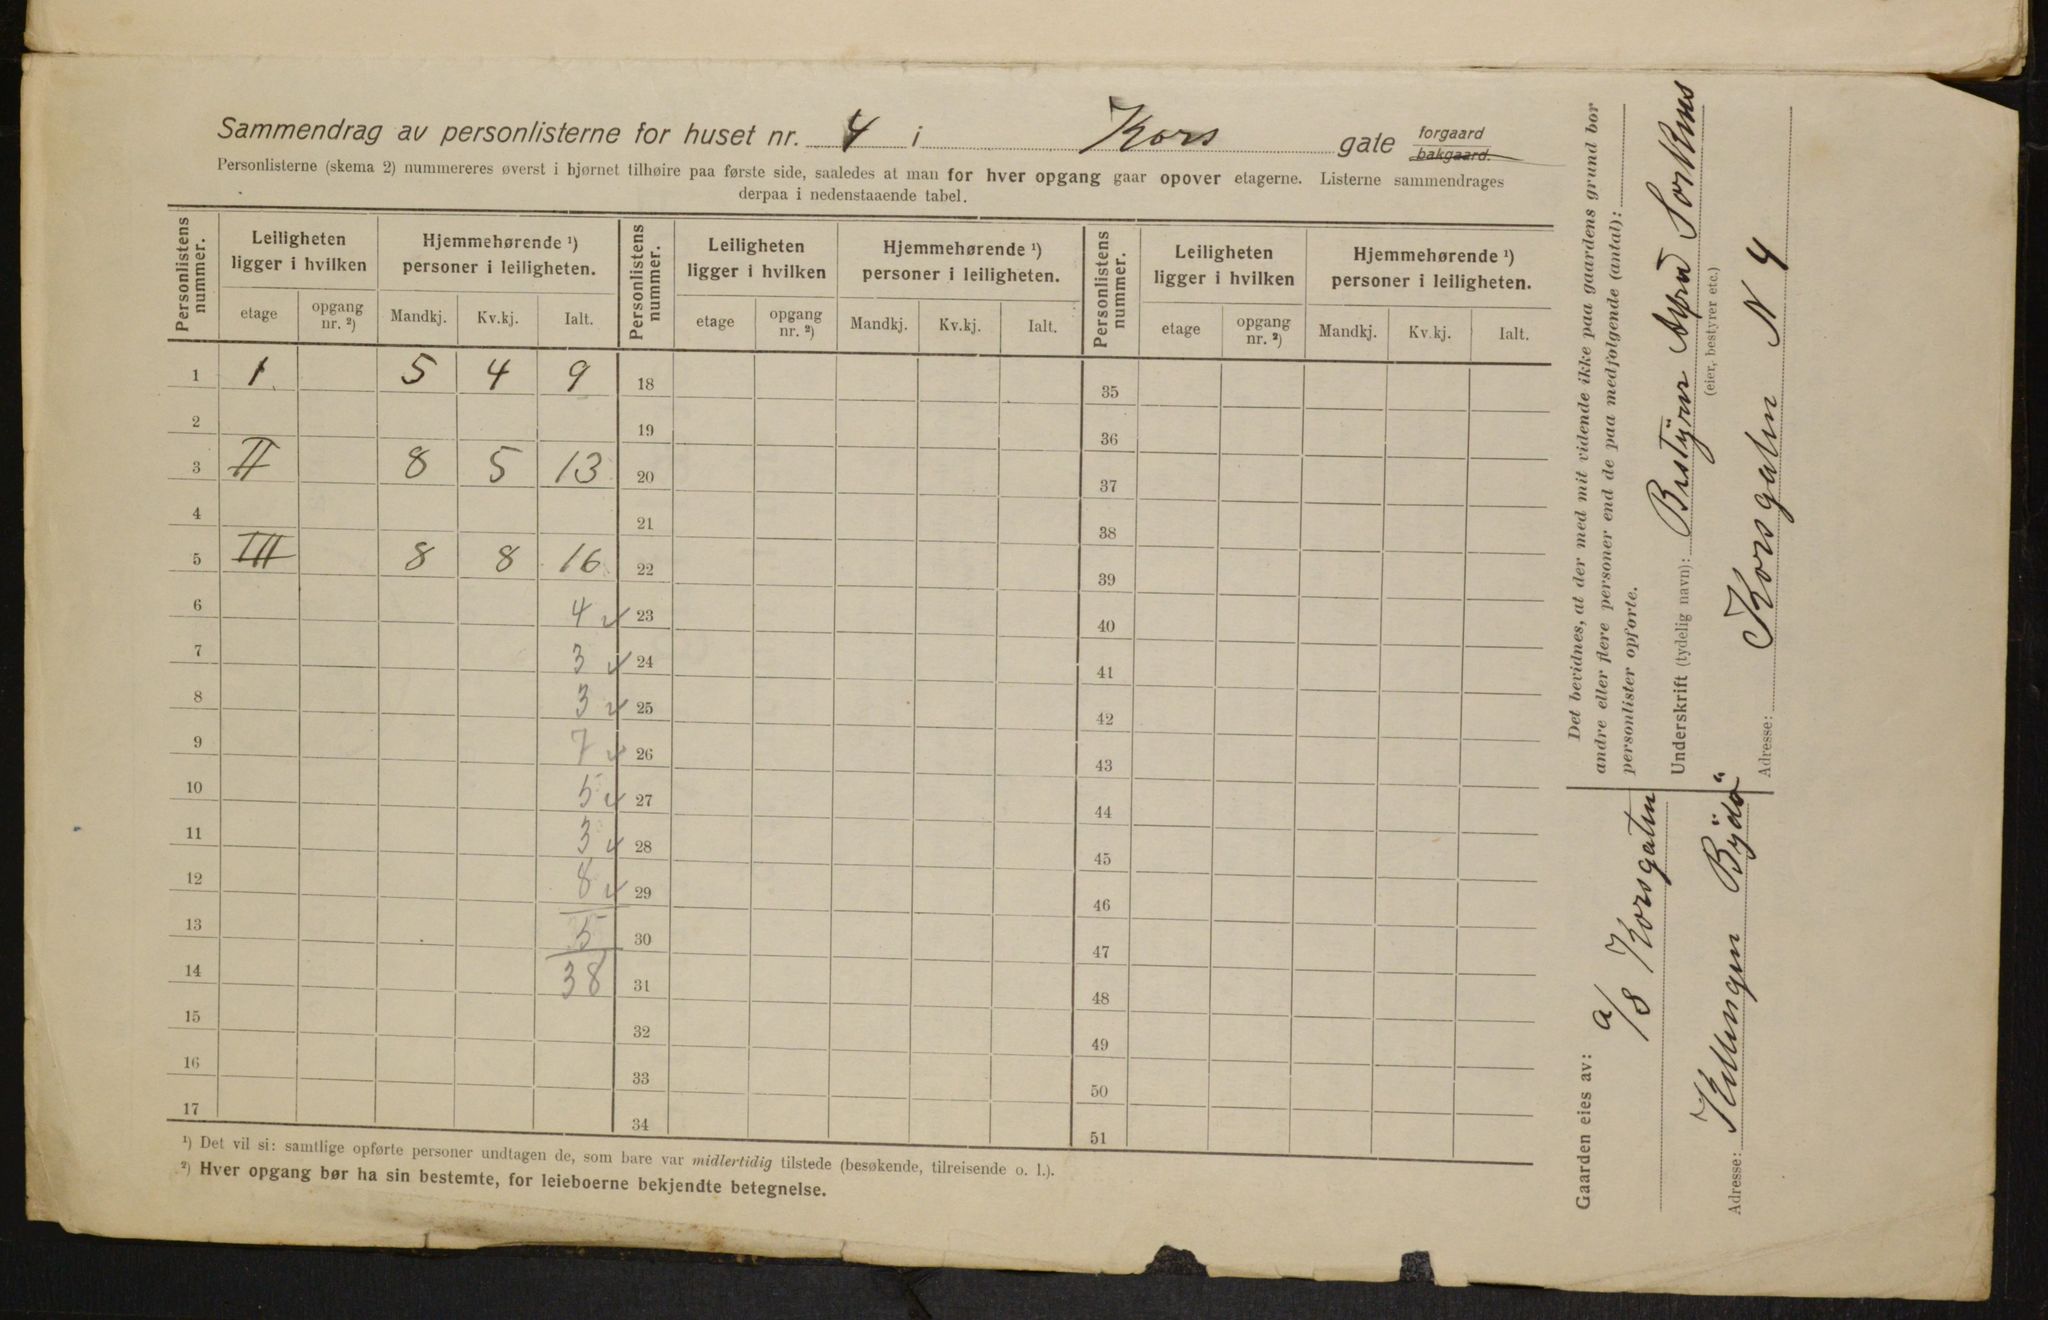 Sammendrag av personlisterne for huset nr. 4 i Kors gate forgaard bakgaard.
Personlisterne (skema 2) nummereres øverst i hjørnet tilhøire paa første side, saaledes at man for hver opgang gaar opover etagerne. Listerne sammendrages
derpaa i nedenstaaende tabel.
Personlistens nummer. Leiligheten ligger i hvilken Hjemmehørende ¹) personer i leiligheten. Personlistens nummer. Leiligheten ligger i hvilken Hjemmehørende ¹) personer i leiligheten. Personlistens nummer. Leiligheten ligger i hvilken Hjemmehørende ¹) personer i leiligheten.
etage opgang nr. ²) Mandkj. Kv.kj. Ialt. etage opgang nr. ²) Mandkj. Kv.kj. Ialt. etage opgang nr. ²) Mandkj. Kv.kj. Ialt.
1 1 5 4 9 18 35
2 19 36
3 II 8 5 13 20 37
4 21 38
5 III 8 8 16 22 39
6 4 23 40
7 3 24 41
8 3 25 42
9 7 26 43
10 5 27 44
11 3 28 45
12 8 29 46
13 5 30 47
14 38 31 48
15 32 49
16 33 50
17 34 51
¹) Det vil si: samtlige opførte personer undtagen de, som bare var midlertidig tilstede (besøkende, tilreisende o. l.).
²) Hver opgang bør ha sin bestemte, for leieboerne bekjendte betegnelse.
Det bevidnes, at der med mit vidende ikke paa gaardens grund bor
andre eller flere personer end de paa medfølgende (antal):
personlister opførte.
Underskrift (tydelig navn): Bestÿrer
(eier, bestyrer etc.)
Adresse: Korsgaten N 4
Gaarden eies av: a/s Korsgaten
Adresse: Killingen Bÿdö